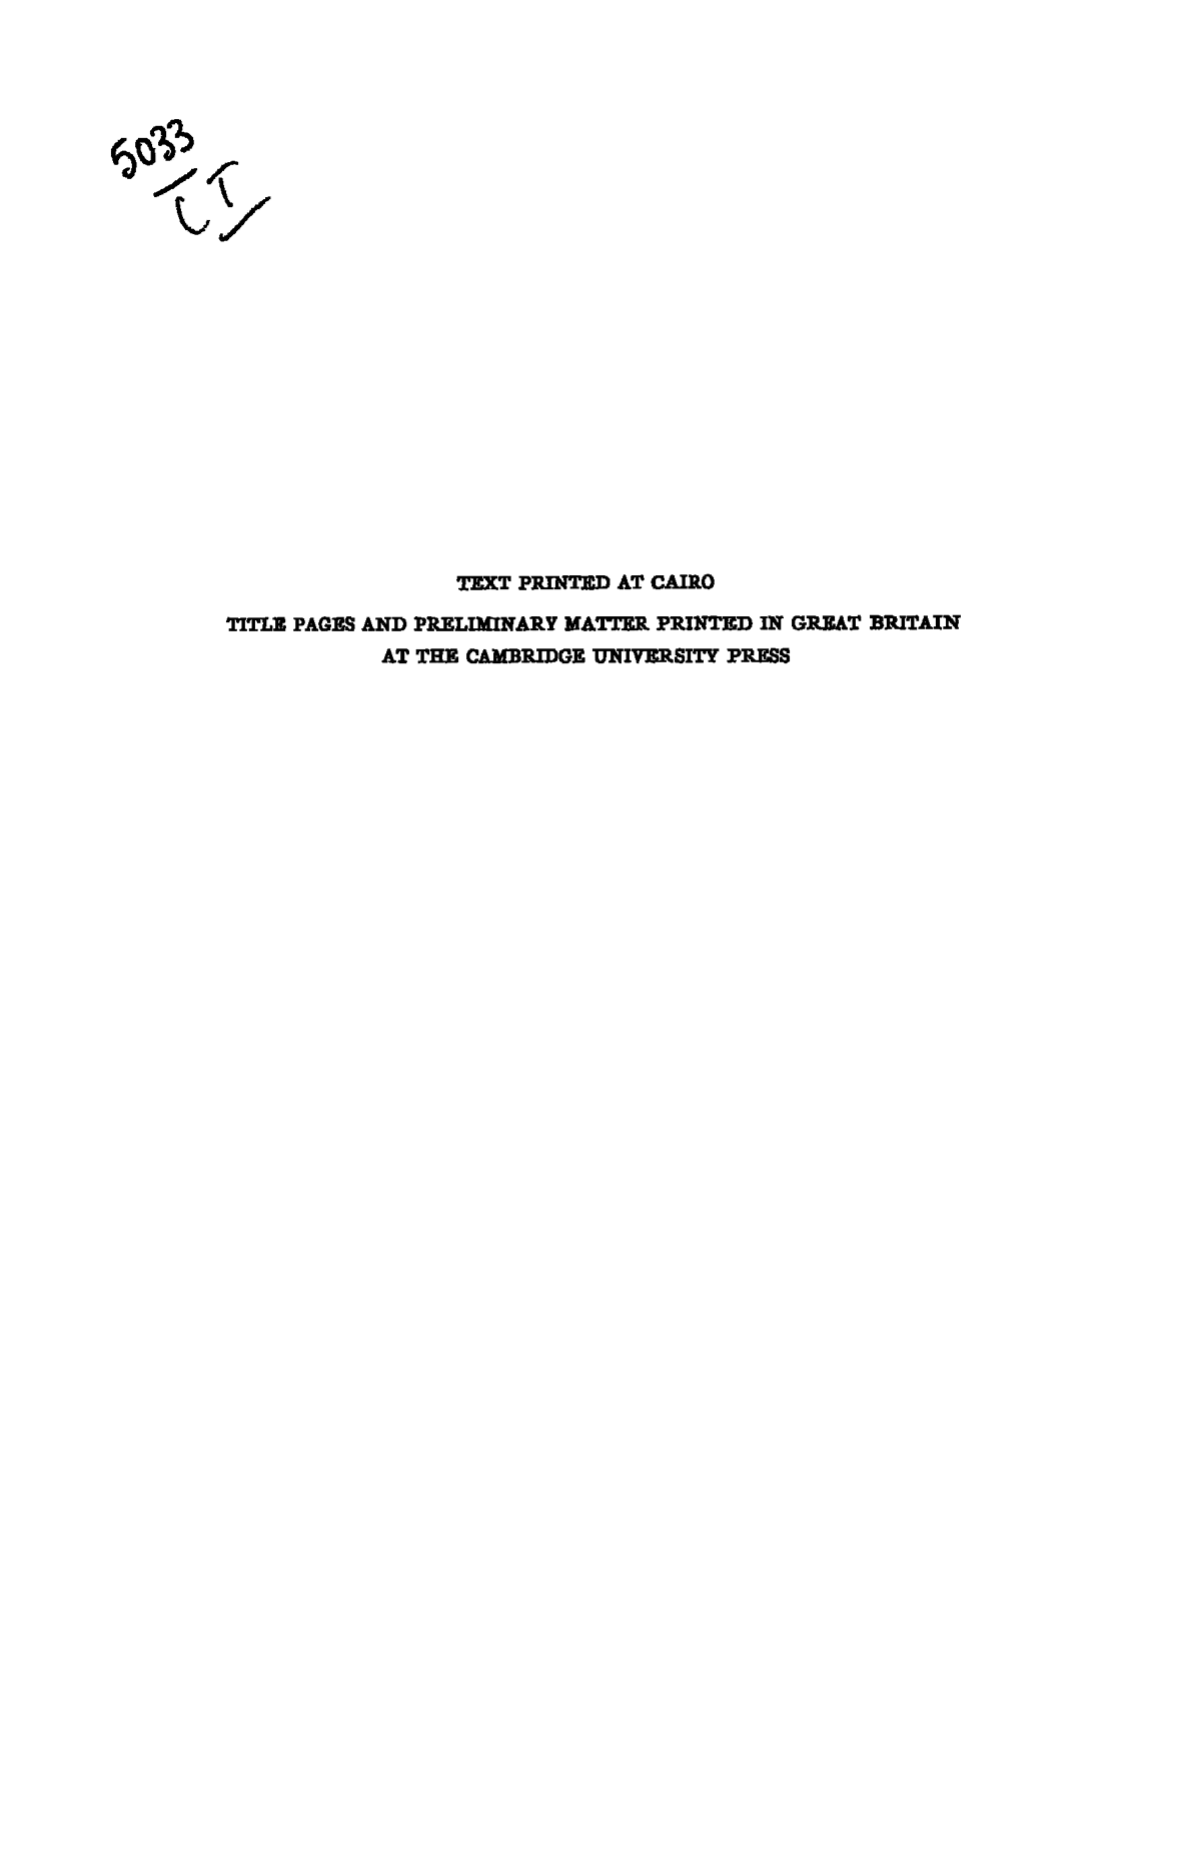 5033
CT
TEXT PRINTED AT CAIRO
TITLE PAGES AND PRELIMINARY MATTER PRINTED IN GREAT BRITAIN
AT THE CAMBRIDGE UNIVERSITY PRESS